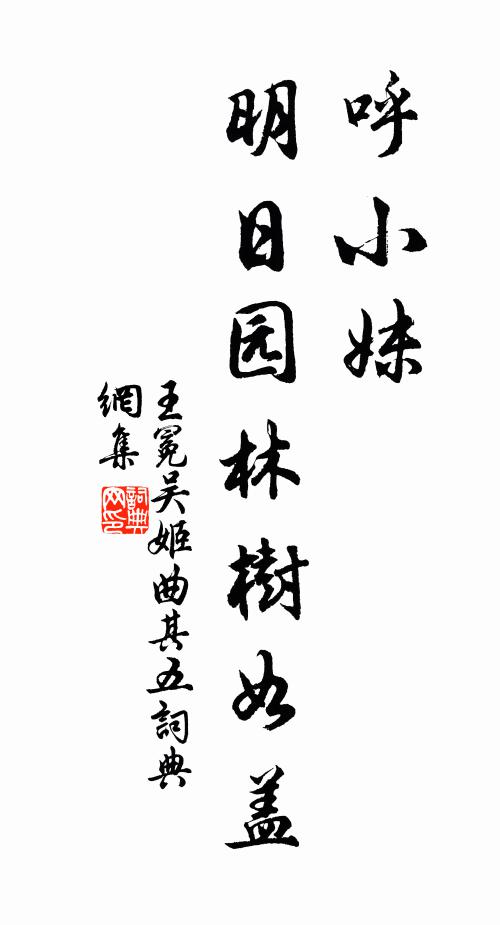 呼小妹
明日园林樹如盖
王冕吴姬曲其五詞典
網集
詞典
网印